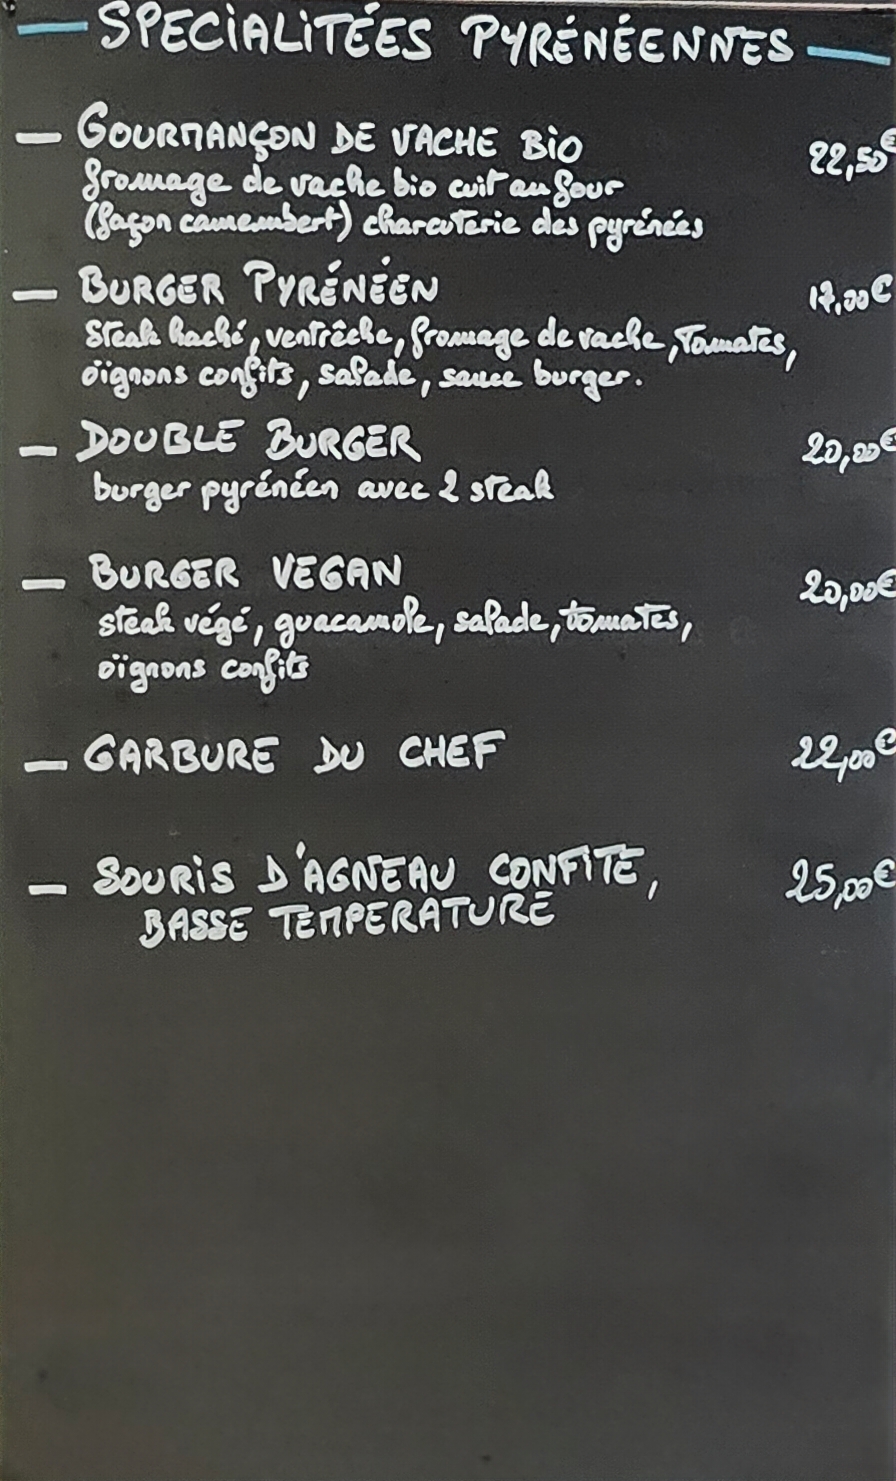 SPECIALITÉES PYRÉNÉENNES
— GOURMANÇON DE VACHE BIO 22,50€
fromage de vache bio cuit au four
(façon camembert) charcuterie des pyrénées
— BURGER PYRÉNÉEN 17,00€
Steak haché, ventrêche, fromage de vache, Tomates,
oïgnons confits, salade, sauce burger.
— DOUBLE BURGER 20,00€
burger pyrénéen avec 2 steak
— BURGER VEGAN 20,00€
steak végé, guacamole, salade, tomates,
oïgnons confits
— GARBURE DU CHEF 22,00€
— SOURIS D'AGNEAU CONFITE, 25,00€
BASSE TEMPERATURE